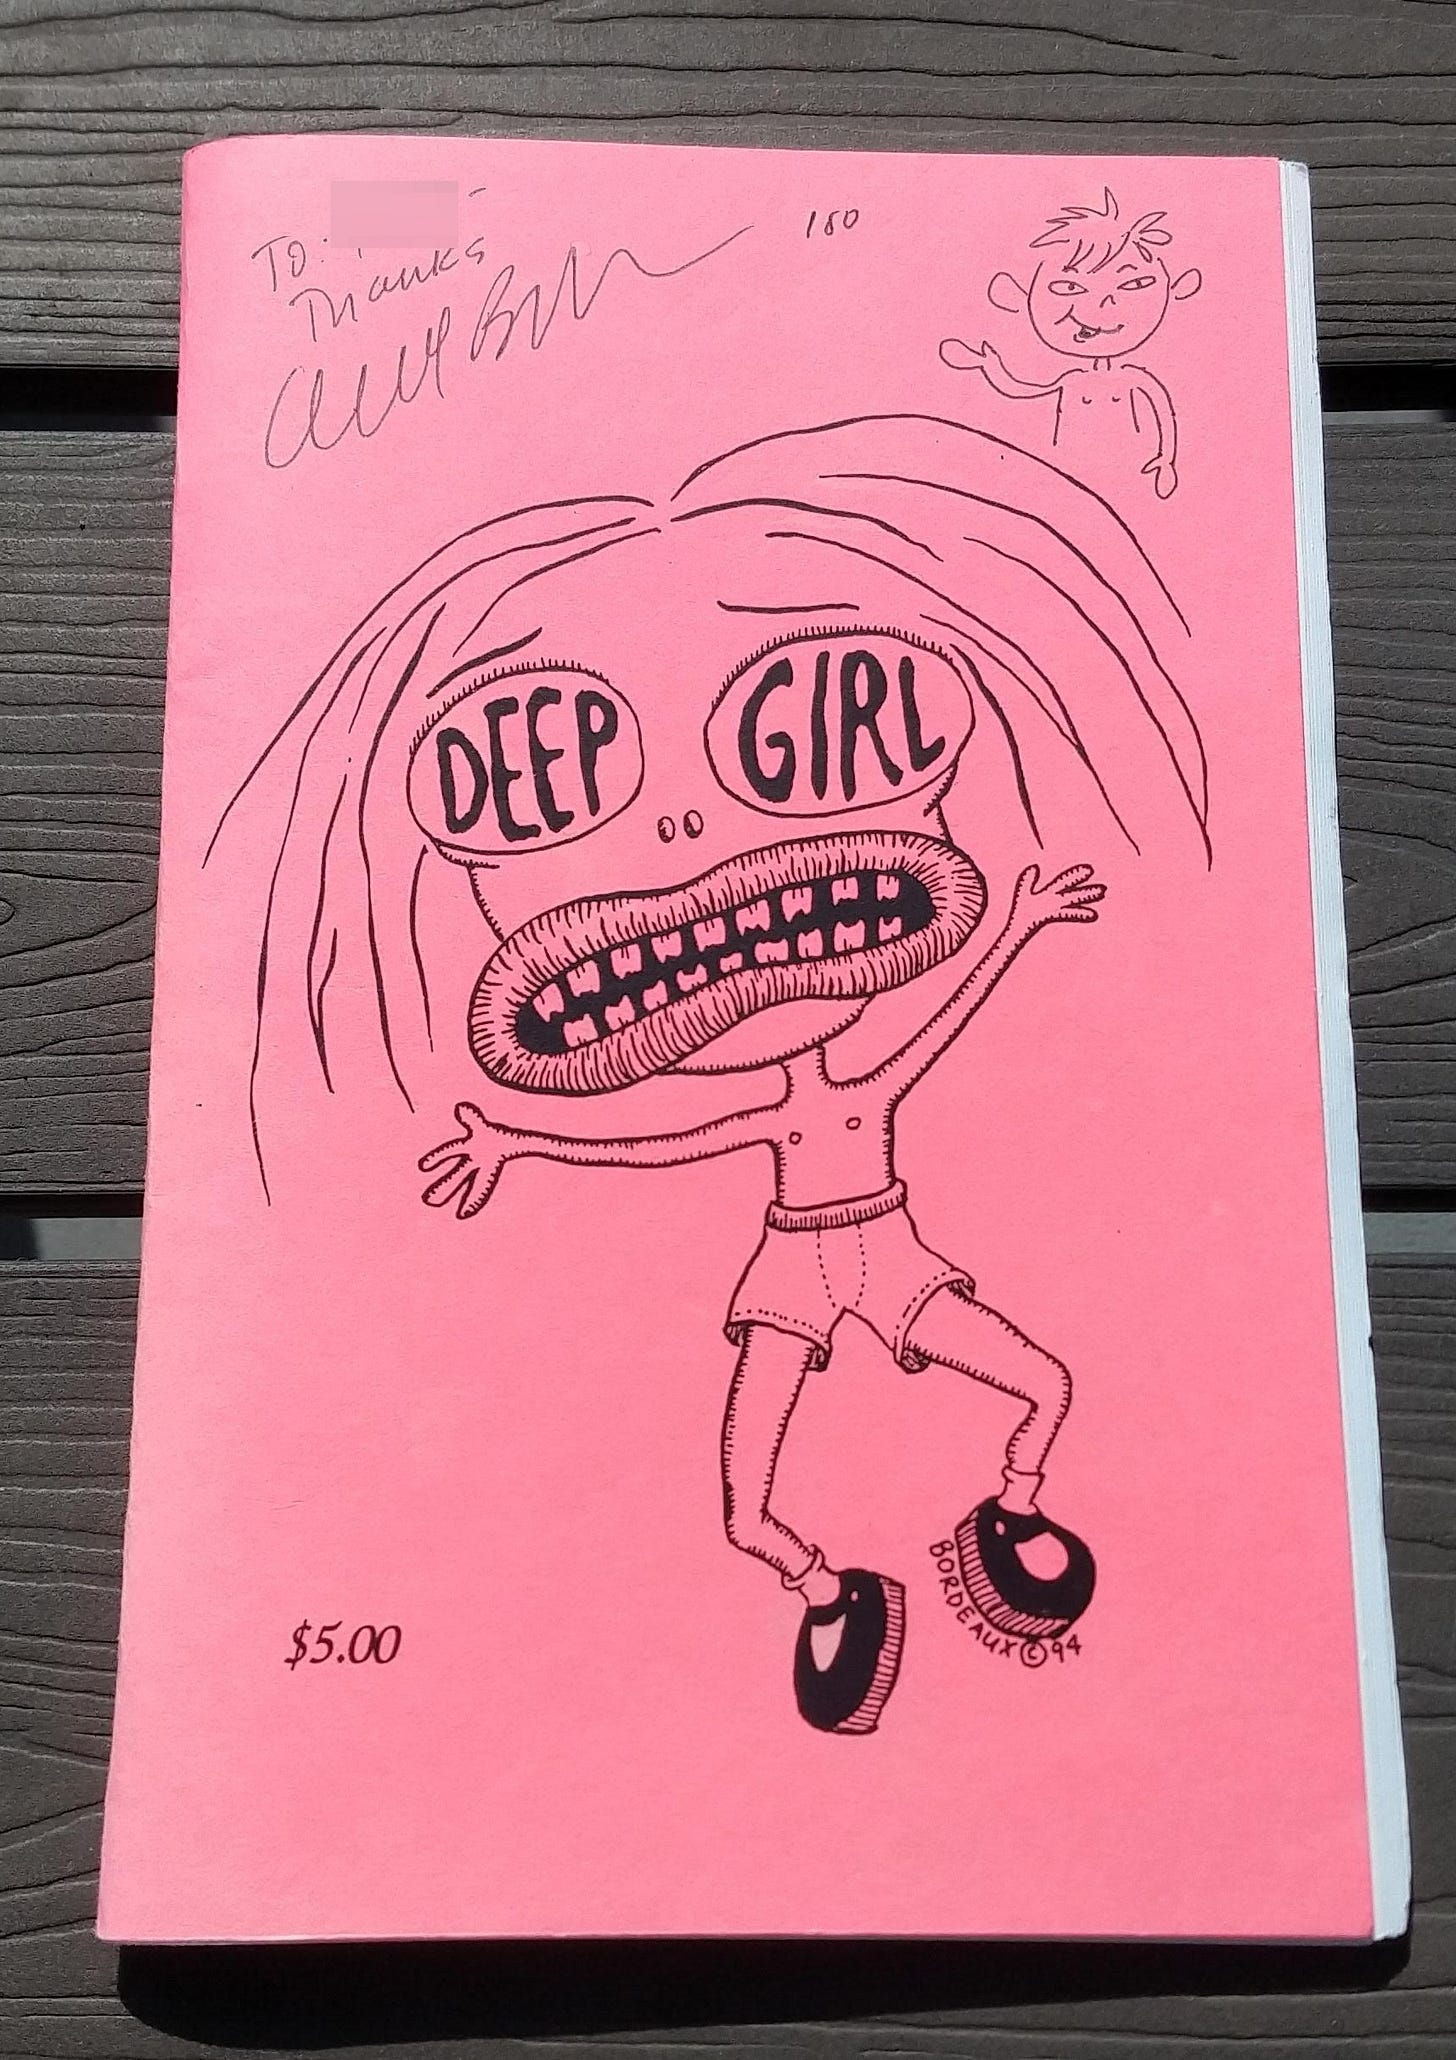 To:
Thanks
180
DEEP GIRL
$5.00
BORDEAUX © 94